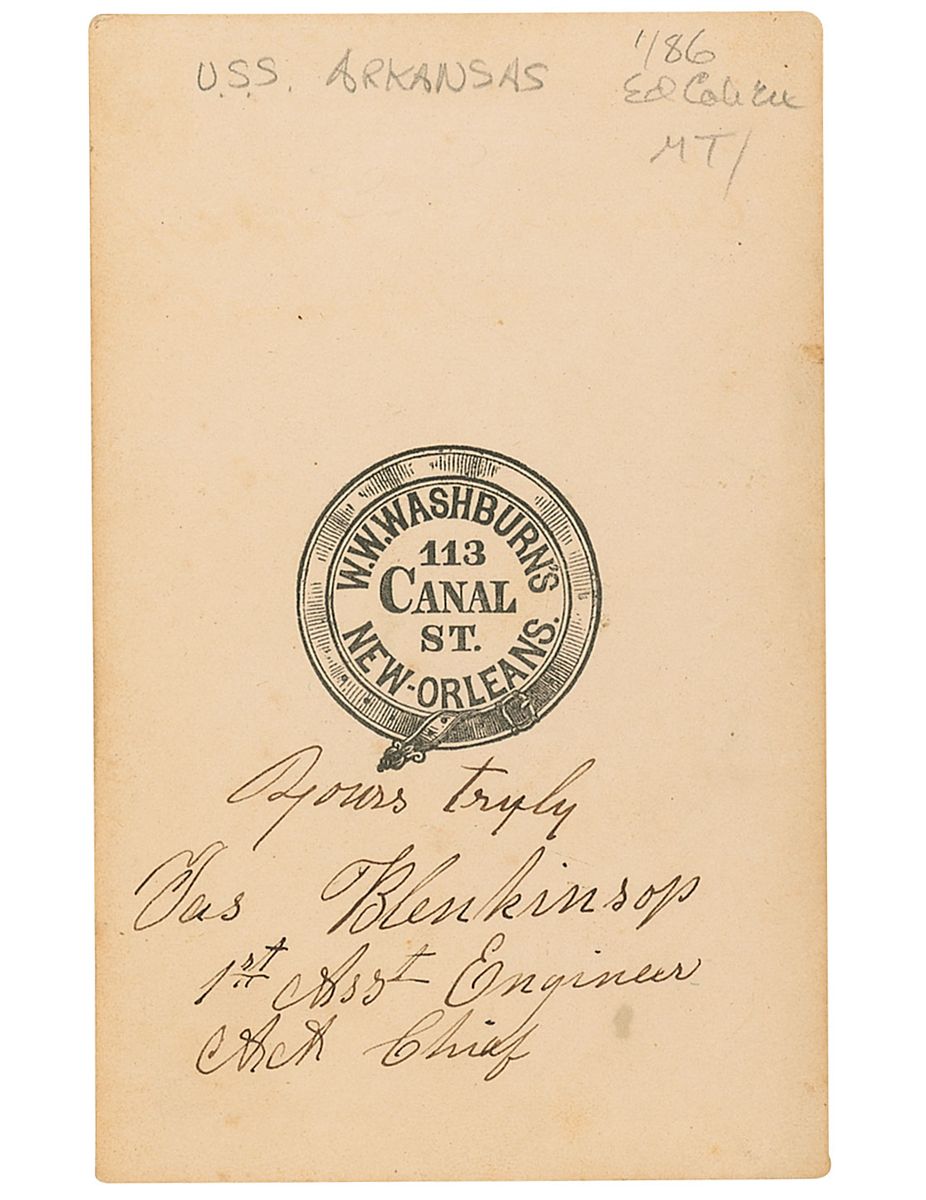 U.S.S. ARKANSAS
1/86
Ed
MT/
W.W.WASHBURN'S
113
CANAL
ST.
NEW-ORLEANS.
Yours truly
Jas Blenkinsop
1st Asst Engineer
Chief